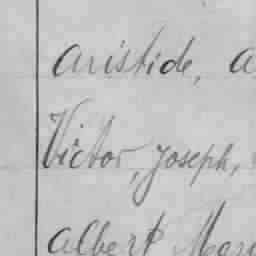 aristide, a
Victor, joseph,
albert Mari